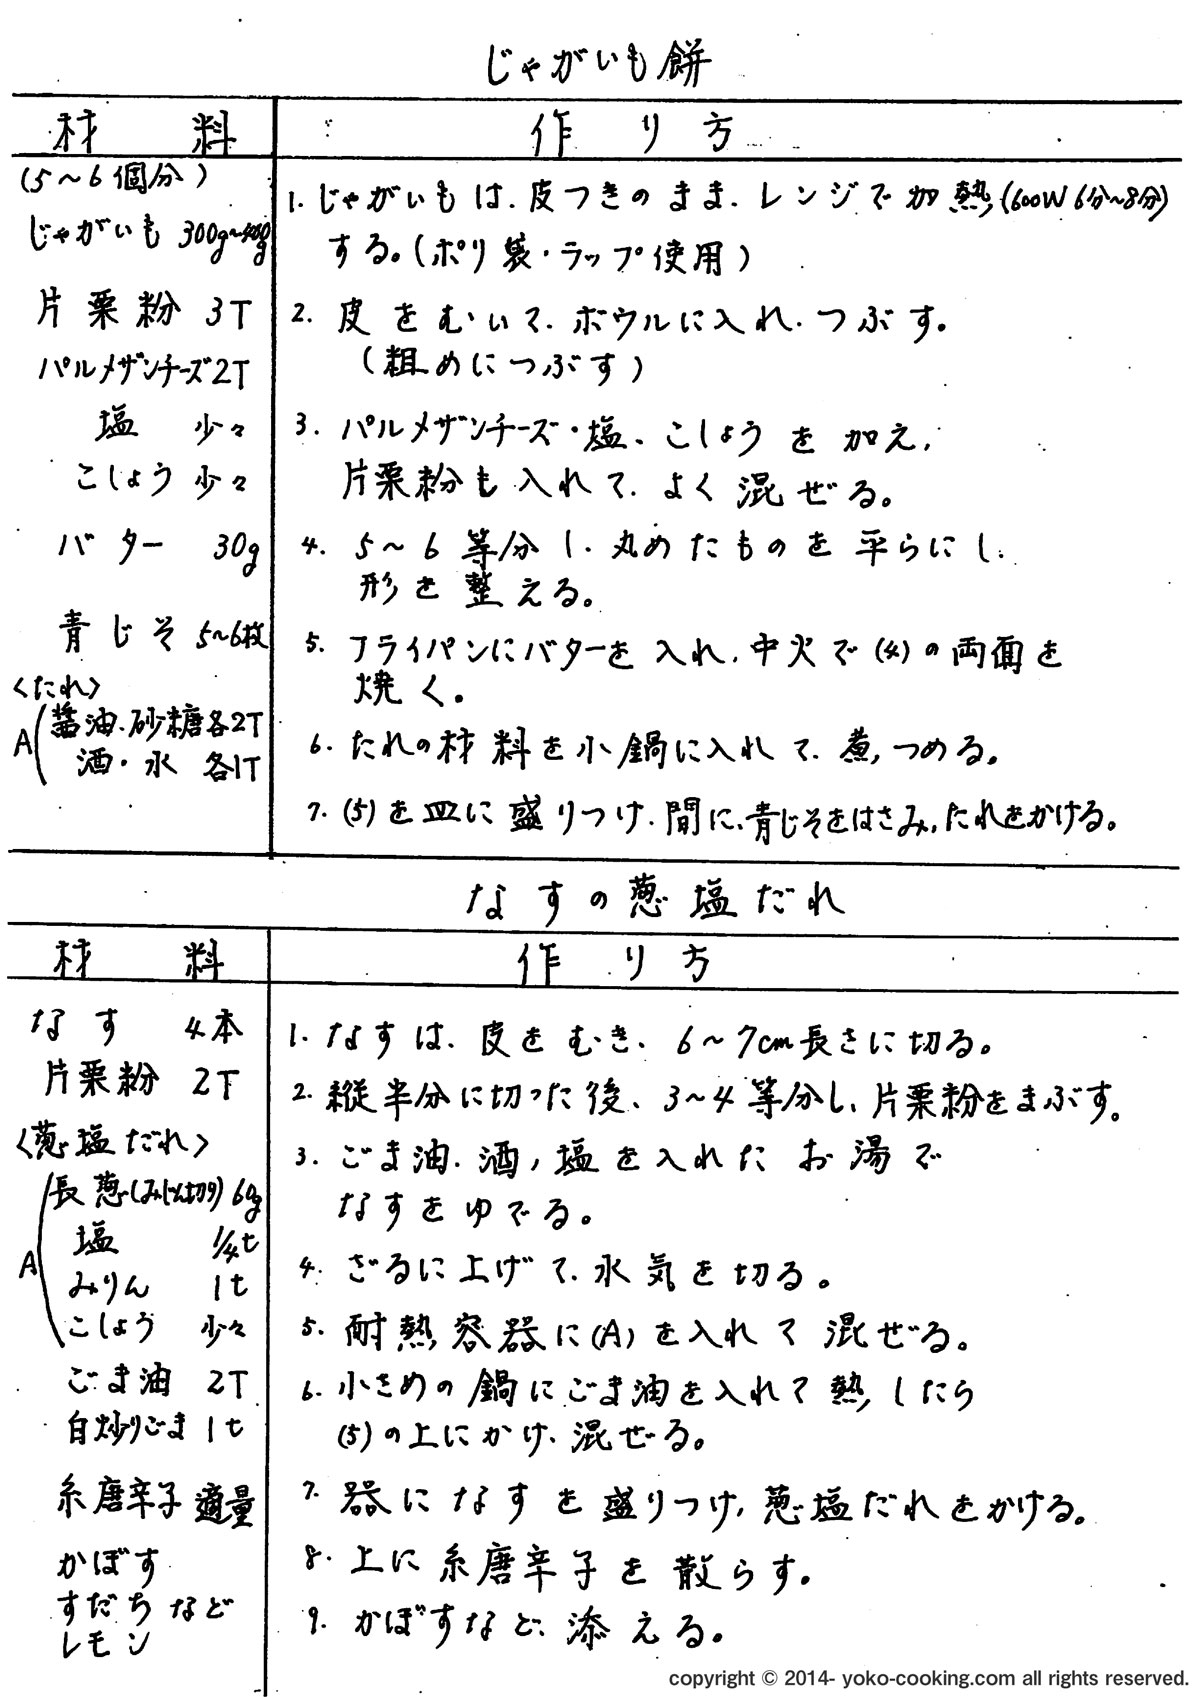 じゃがいも餅
材料
作り方
(5〜6個分)
じゃがいも 300g〜400g
片栗粉 3T
パルメザンチーズ2T
塩 少々
こしょう 少々
バター 30g
青じそ 5〜6枚
〈たれ〉
A
醤油、砂糖各2T
酒・水 各1T
1. じゃがいもは、皮つきのまま、レンジで加熱(600W 6分〜8分)
する。(ポリ袋・ラップ使用)
2. 皮をむいて、ボウルに入れ、つぶす。
(粗めにつぶす)
3. パルメザンチーズ・塩、こしょうを加え、
片栗粉も入れて、よく混ぜる。
4. 5〜6等分し、丸めたものを平らにし、
形を整える。
5. フライパンにバターを入れ、中火で(4)の両面を
焼く。
6. たれの材料を小鍋に入れて、煮つめる。
7. (5)を皿に盛りつけ、間に、青じそをはさみ、たれをかける。
なすの葱塩だれ
材料
作り方
なす 4本
片栗粉 2T
〈葱塩だれ〉
A
長葱(みじん切り) 60g
塩 1/4t
みりん 1t
こしょう 少々
ごま油 2T
白炒りごま 1t
糸唐辛子 適量
かぼす
すだち など
レモン
1. なすは、皮をむき、6〜7cm長さに切る。
2. 縦半分に切った後、3〜4等分し、片栗粉をまぶす。
3. ごま油、酒、塩を入れたお湯で
なすをゆでる。
4. ざるに上げて、水気を切る。
5. 耐熱容器に(A)を入れて混ぜる。
6. 小さめの鍋にごま油を入れて熱したら
(5)の上にかけ、混ぜる。
7. 器になすを盛りつけ、葱塩だれをかける。
8. 上に糸唐辛子を散らす。
9. かぼすなど、添える。
copyright © 2014- yoko-cooking.com all rights reserved.